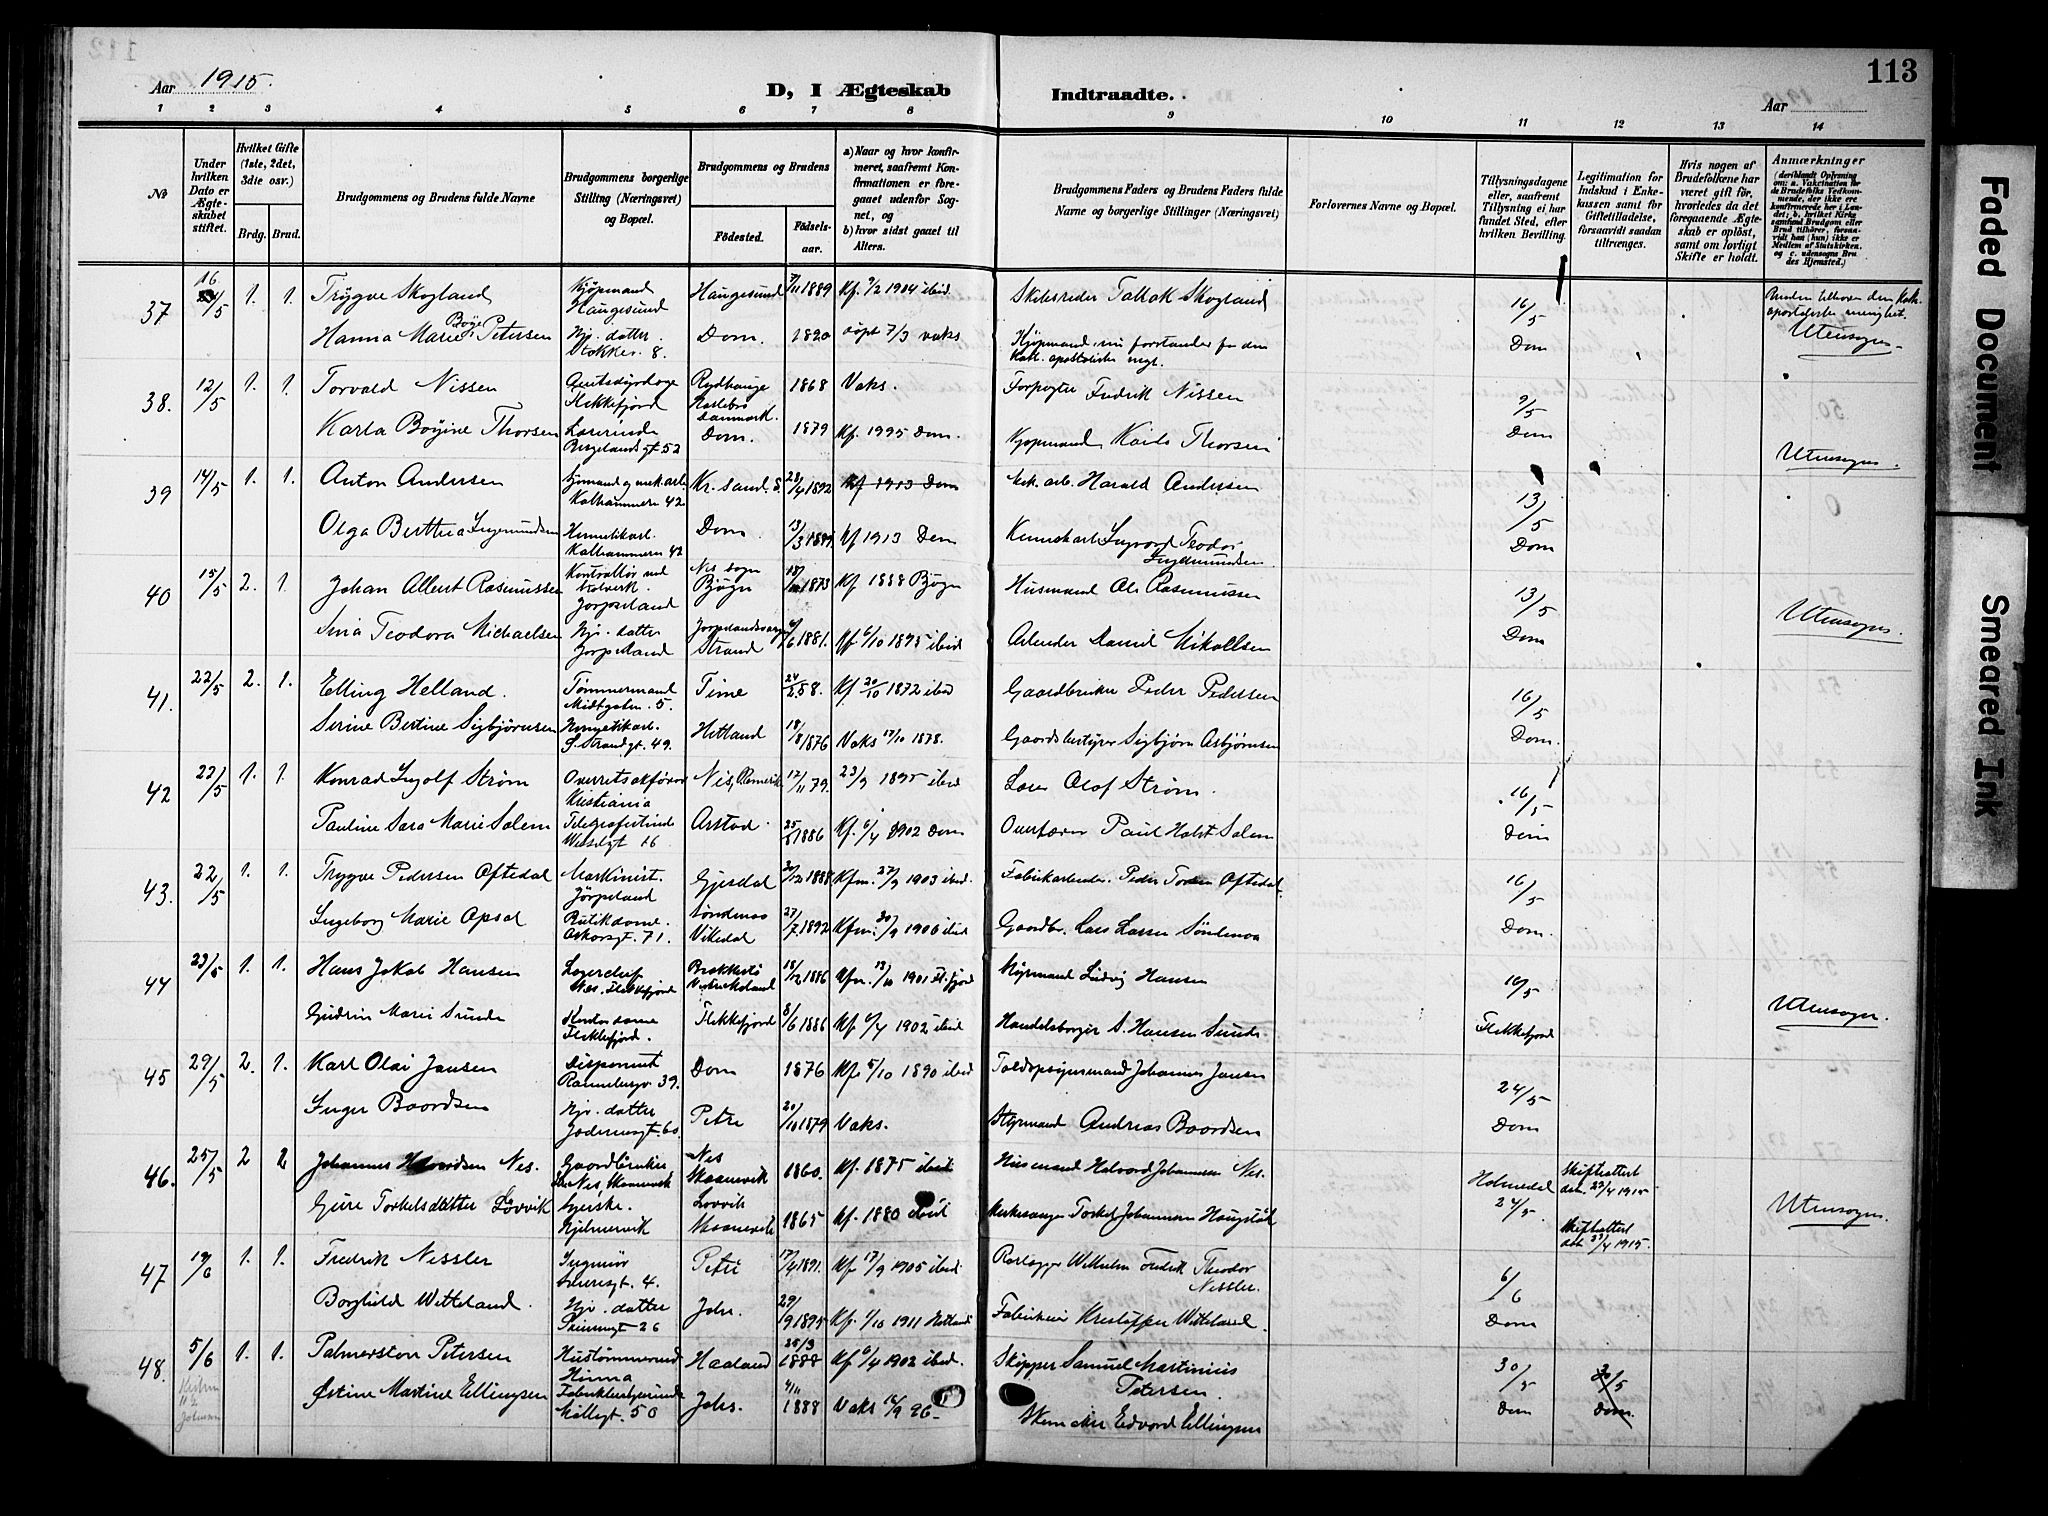 113
Aar 1915.
D, I Ægteskab Indtraadte.
Aar
1 2 3 4 5 6 7 8 9 10 11 12 13 14
No
Under hvilken Dato er Ægteskabet stiftet.
Hvilket Gifte (1ste, 2det, 3die osv.)
Brdg. Brud.
Brudgommens og Brudens fulde Navne
Brudgommens borgerlige Stilling (Næringsvei) og Bopæl.
Brudgommens og Brudens
Fødested.
Fødselsaar.
a) Naar og hvor konfirmeret, saafremt Konfirmationen er foregaaet udenfor Sognet, og
b) hvor sidst gaaet til Alters.
Brudgommens Faders og Brudens Faders fulde Navne og borgerlige Stillinger (Næringsvei)
Forlovernes Navne og Bopæl.
Tillysningsdagene eller, saafremt Tillysning ei har fundet Sted, efter hvilken Bevilling.
Legitimation for Indskud i Enkekassen samt for Giftetilladelse, forsaavidt saadan tiltrænges.
Hvis nogen af Brudefolkene har været gift før, hvorledes da det foregaaende Ægteskab er opløst, samt om lovligt Skifte er holdt.
Anmærkninger
(deriblandt Oplysning om: a. Vaccination for de Brudefolks Vedkommende, der ikke ere konfirmerede her i Landet; b. hvilket Kirkesamfund Brudgom eller Brud tilhører, forsaavidt han (hun) ikke er Medlem af Statskirken, og c. udensogns Brudes Hjemsted.)
37 16/5 1. 1. Trygve Skogland Kjøpmand Haugesund Haugesund 7/11 1889 Kf. 9/2 1904 ibid. Skibsreder Tallak Skogland 16/5 Dom
Hanna Marie Bøje Petersen Hj. datter. Stokkev. 8. Dom. 1820 døpt 7/3 vaks Kjøpmand, nu forstander for den kath. apostoliske mgt.
Utensogns
38. 12/5 1. 1. Torvald Nissen Amtsdyrlæge Flekkefjord Danmark 1868 Vaks. Forpagter Fredrik Nissen 9/5 Dom
Karla Bøyine Thorsen Lærerinde Bergelandsgt 52 Dom 1879 Kf. 1995 Dom. Kjøpmand Karls Thorsen
Utensogns.
39 14/5 1. 1. Anton Andersen Kalhammerv 42 Kr.sand. S. 28/4 1892 Kf 1913 Dom Mek. arb. Harald Andersen 13/5 Dom
Olga Berthea Ingemundsen Hermetikarb. Kalhammerv 42 Dom. Kf 1913 Dom Teodor Ingemundsen
40 15/5 2. 1. Johan Albert Rasmussen Kontrollør ved Stalverk. Jørpeland Nes sogn Bjugn 1873 Kf 1888 Bjugn Husmand Ole Rasmussen 13/5 Dom
Teodora Michaelsen Hj. datter Jørpeland Strand 6/6 1881. Kf 6/10 1895 ibid Arbeider Daniel Mikallsen
Utensogns.
41. 22/5 2. 1. Elling Helland. Tømmermand Midtgaten. 5. Time 24/2 58. Kf. 20/10 1872 ibid Gaardbruker Peder Pedersen 16/5 Dom.
Serine Bertine Sigbjørnsen Hermetikarb. Ø. Strandgt. 49. Hetland 18/8 1876 Vaks 17/10 1878. Gaardsbestyrer Sigbjørn Asbjørnsen
42 22/5 1. 1. Konrad Ingolf Strøm Overretssakfører Kristiania Nes, 12/11 79. 23/9 1895 ibid Olof Strøm. 16/5 Dom
Pauline Sara Marie Salem Telegrafistinde Wesselgt 16 Arstad. 25/8 1886 Kf. 6/4 1902 Dom Paul Holst Salem
43. 22/5 1. 1. Trygve Pedersen Oftedal Maskinist. Jørpeland Gjesdal 30/12 1888 Kfm. 27/9 1903 ibid. Fabrikarbeider. Peder Oftedal. 16/5 Dom.
Ingeborg Marie Opsal Butikdame. Oskarsgt. 71. Søndenaa Vikedal 27/7 1892 Kfm. 30/9 1906 ibid Gaardbr. Lars Larsen Søndenaa
44 23/5 1. 1. Hans Jakob Hansen Lagerchef Nes. Flekkefjord 18/12 1886 Kfm. 13/10 1901 Fl.fjord Styrmand Ludvig Hansen 16/5 Flekkefjord
Gudrun Marie Sunde Kontordame Flekkefjord. Flekkefjord 8/6 1886 Kf 6/4 1902 ibid Handelsborger S. Hansen Sunde
Utensogns.
45 29/5 2. 1. Karl Olai Jansen Disponent 39. Dom 1876 Kf 5/10 1890 ibid Toldopsynsmand Johannes Jansen 24/5 Dom
Inger Baardsen Hj. datter Jæderensgt. 60. Petri 20/10 1879 Vaks. Styrmand Andreas Baardsen
46. 25/5 2 2 Johannes Halvordsen Nes. Gaardbruker Nes Skaanevik Nes Skaanevik 1860. Kf. 1875 ibid Husmand Halvard Johannesen Nes. Holmedal 24/5. Skifteattest dat. 23/4 1915
Guro Torkelsdatter Løvvik Kjelmervik Løvvik Skaanevik 1865 Kf. 1880 ibid Kirkesanger Torkel Johannesen Skifteattest dat. 23/4 1915.
Utensogns.
47 19/6 1. 1. Fredrik Nissler Ingeniør 4. Petri 17/4 1891. Kf 17/9 1905 ibid. Wilhelm Fredrik Theodor Nissler. 6/6 Dom
Borghild Witteland. Hj. datter 26 Joh. 29/9 1895 Kf. 1/10 1911 Hetland Fabrikeier Kristoffer Witteland.
48. 5/6 1. 1. Palmerston Petersen Hustømmermand Hinna Haaland 28/3 1888 Kf 6/4 1902 ibid. Skipper Samuel Martinius Petersen. 30/5 Dom 30/5 Dom.
Østine Martine Ellingsen Møllegt. 50 Johs. 4/11 1888 Vaks 16/9 96. Edvard Ellingsen
Faded Document
Smeared Ink